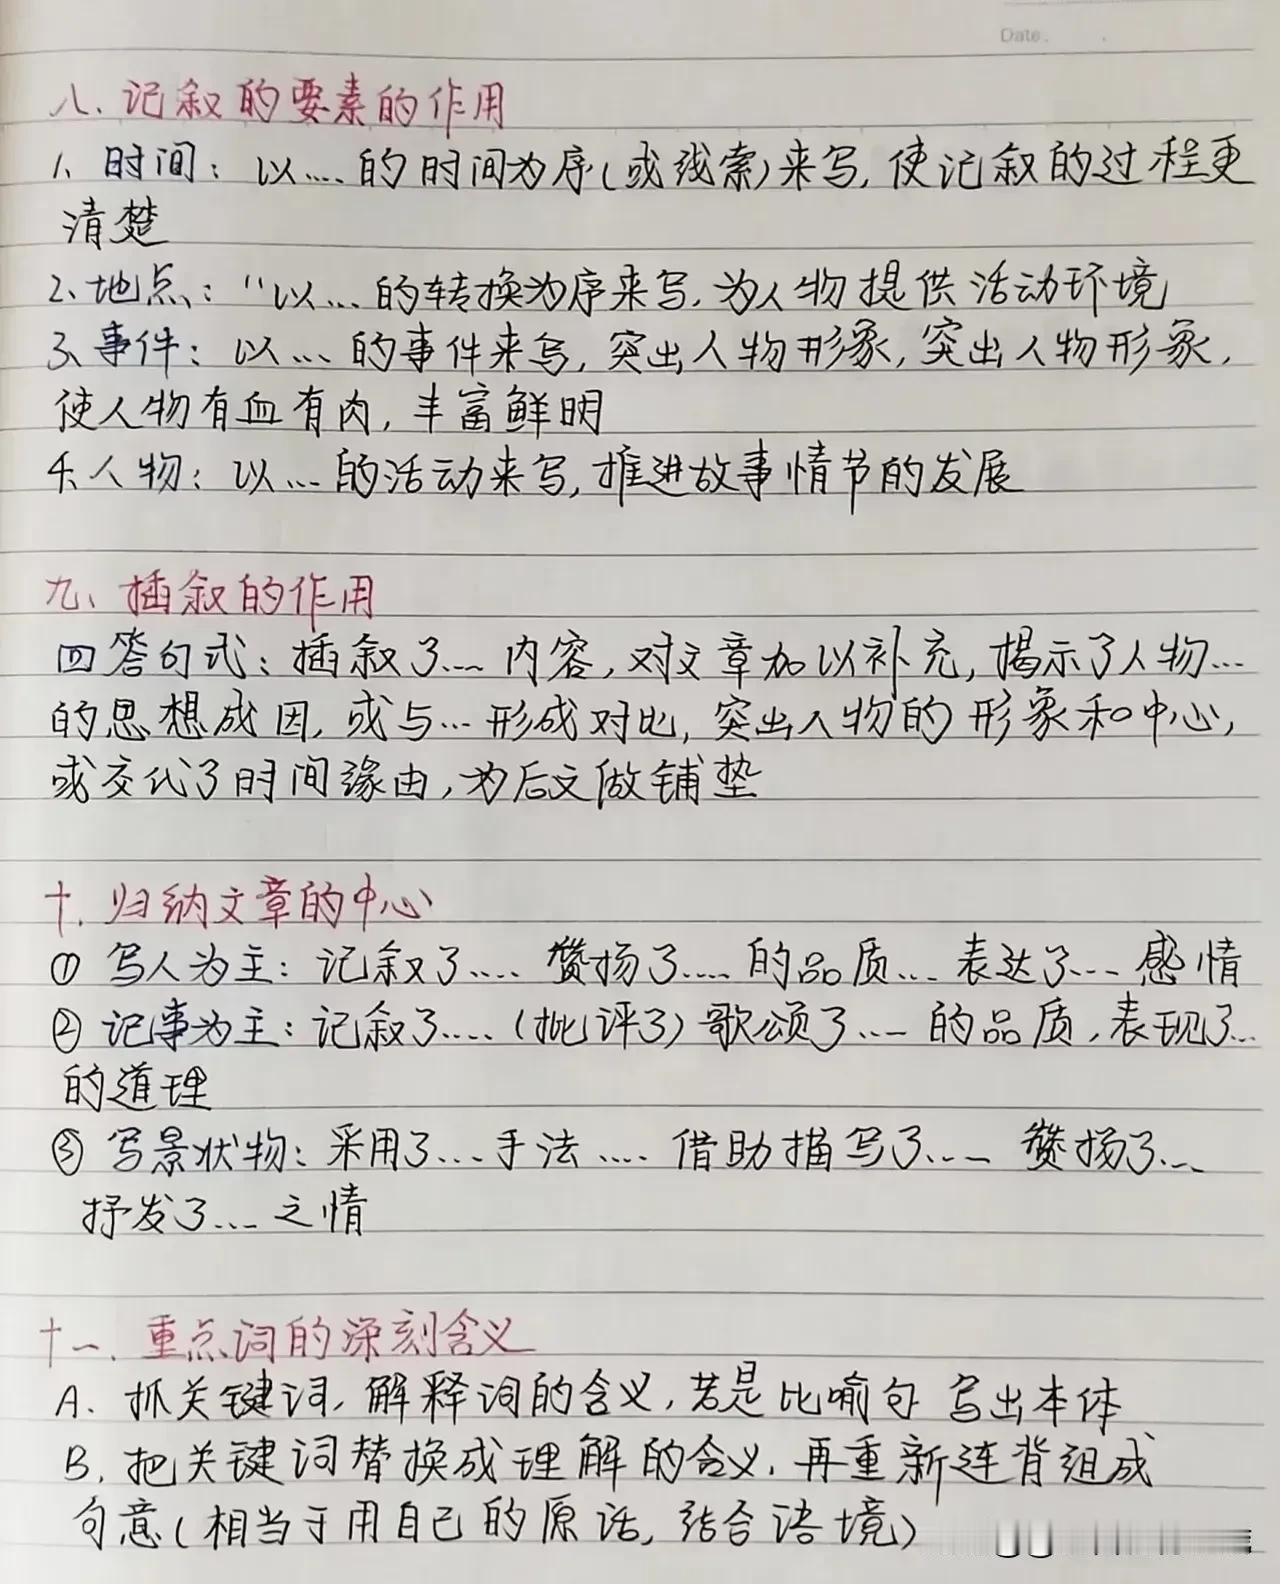 Date.
八、记叙的要素的作用
1、时间：以....的时间为序(或线索)来写，使记叙的过程更
清楚
2、地点：“以....的转换为序来写，为人物提供活动环境
3、事件：以....的事件来写，突出人物形象，突出人物形象，
使人物有血有肉，丰富鲜明
4、人物：以....的活动来写，推进故事情节的发展
九、插叙的作用
四答句式：插叙了....内容，对文章加以补充，揭示了人物...
的思想成因，或与...形成对比，突出人物的形象和中心，
或交代了时间缘由，为后文做铺垫
十、归纳文章的中心
① 写人为主：记叙了.... 赞扬了.... 的品质... 表达了.... 感情
② 记事为主：记叙了....(批评了)歌颂了.... 的品质，表现了...
的道理
③ 写景状物：采用了....手法.... 借助描写了.... 赞扬了....
抒发了....之情
十一、重点词的深刻含义
A. 抓关键词，解释词的含义，若是比喻句 写出本体
B. 把关键词替换成理解的含义，再重新连背组成
句意(相当于用自己的原话，结合语境)